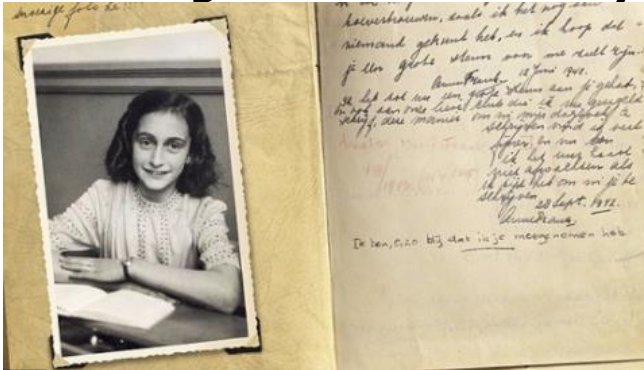 snoezige foto hè!!!
niemand gekund heb, en ik hoop dat
je een grote steun voor me zult zijn.
Anne Frank. 12 Juni 1942.
Ik heb tot nu een grote steun aan je gehad,
en ook aan onze lieve club die ik nu geregeld
schrijf, deze manier om in mijn dagboek te
schrijven vind ik veel
fijner, en nu kan
ik het uur haast
niet afwachten als
ik tijd heb om in je te
schrijven
28 Sept. 1942.
Anne Frank.
Ik ben, o, zo blij dat ik je meegenomen heb.